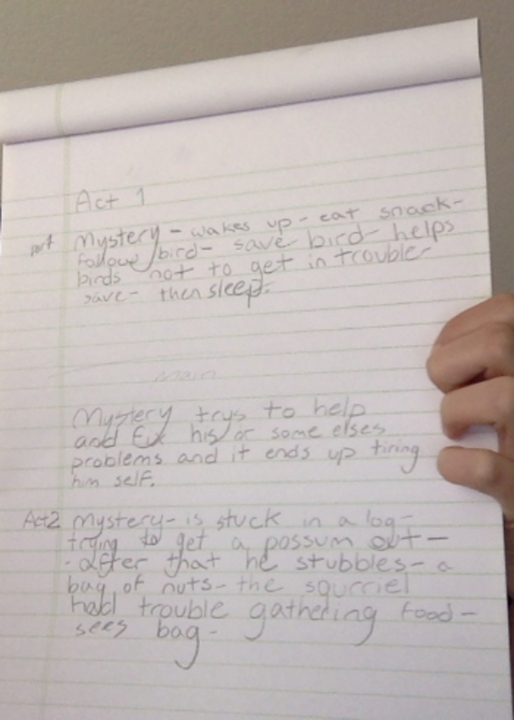 Act 1
Mystery - wakes up - eat snack -
follow bird - save bird - helps
birds not to get in trouble -
save - then sleep.
main
Mystery trys to help
and fix his or some elses
problems and it ends up tiring
him self.
Act2 Mystery - is stuck in a log -
trying to get a possum out -
- after that he stubbles - a
bag of nuts - the squrriel
had trouble gathering food -
sees bag -